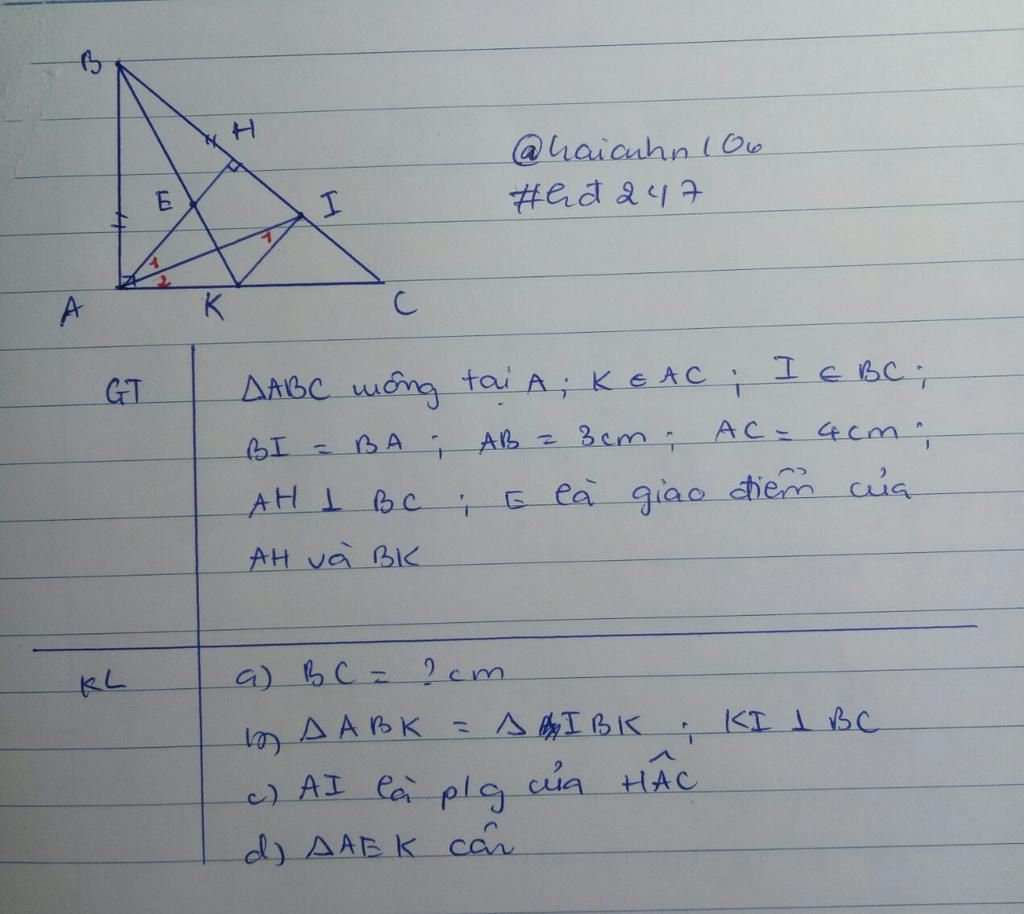 B
H
@haianhn106
#hđ247
E
I
1
1
2
A
K
C
GT
ΔABC vuông tại A ; K ∈ AC ; I ∈ BC ;
BI = BA ; AB = 3cm ; AC = 4cm ;
AH ⊥ BC ; E là giao điểm của
AH và BK
KL
a) BC = ? cm
b) ΔABK = ΔIBK ; KI ⊥ BC
c) AI là p/g của HÂC
d) ΔAEK cân